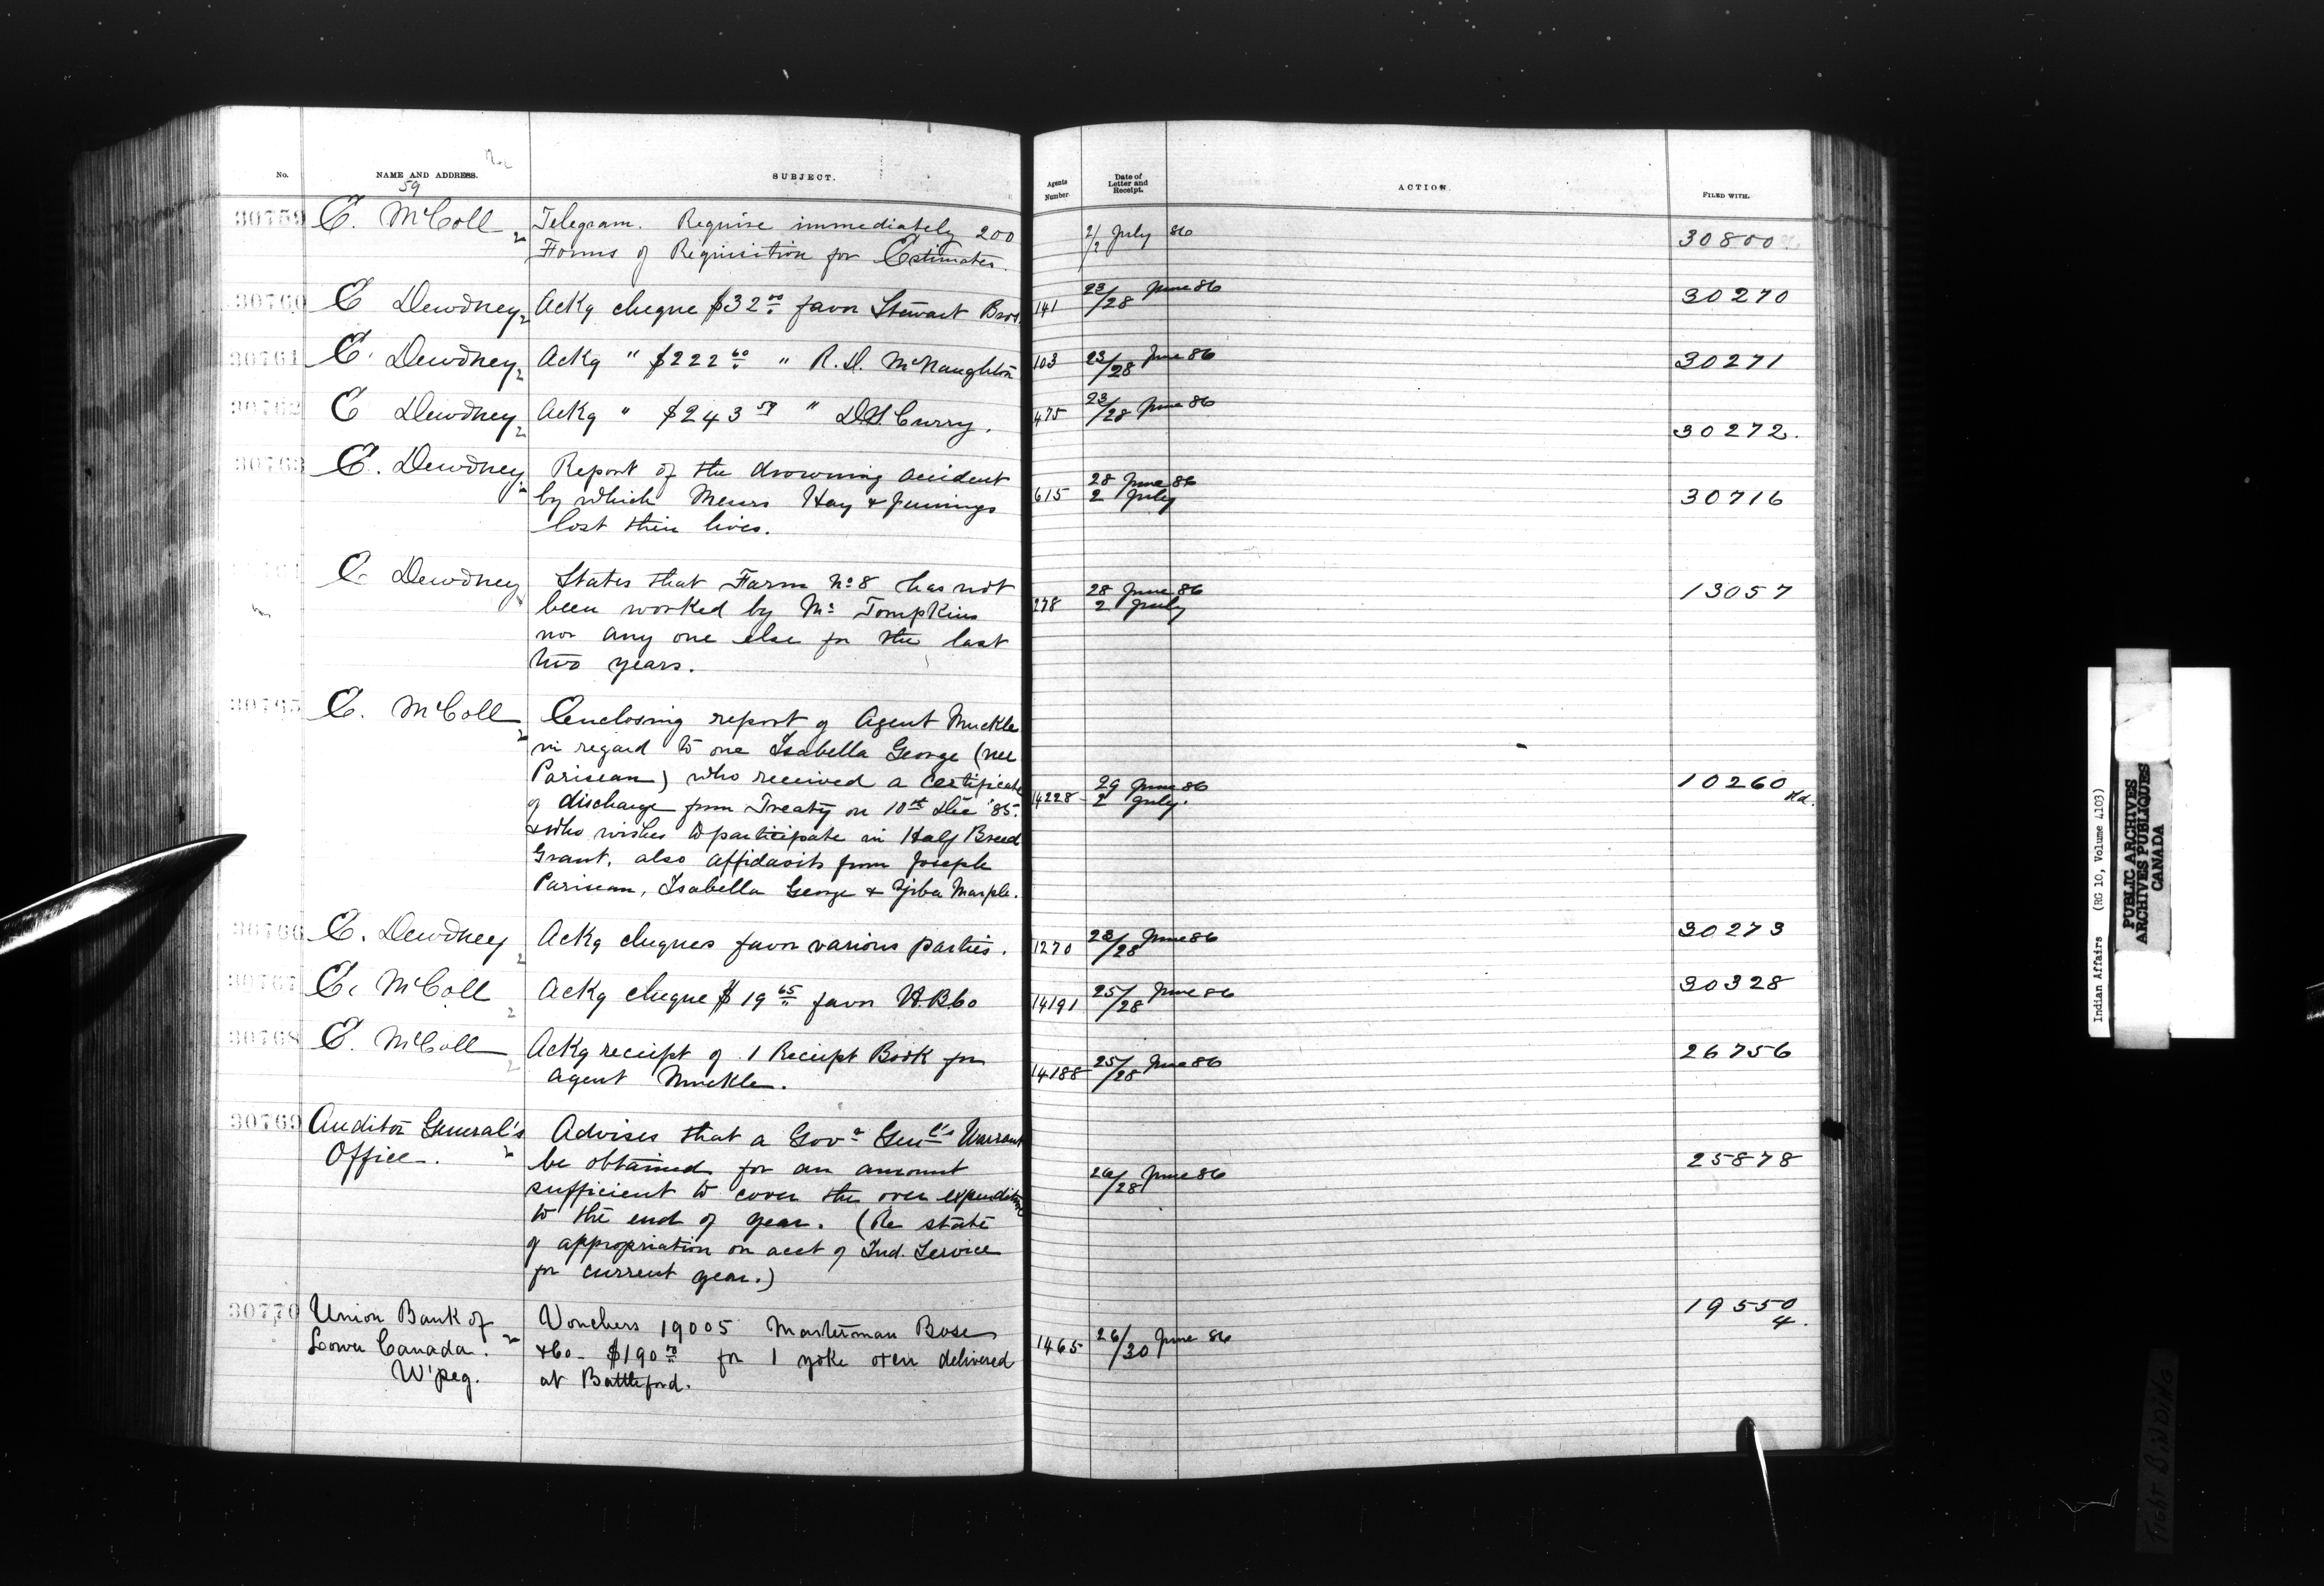 No. NAME AND ADDRESS. SUBJECT. Agents Number. Date of Letter and Receipt. ACTION. FILED WITH.
59
30759 E. McColl Telegram. Require immediately 200 2/2 July 86 30800
Forms of Requisition for Estimates.
30760 E Dewdney Ackg cheque $32.00 favor Stewart Bros. 141 23/28 June 86 30270
30761 E. Dewdney Ackg " $222.60 " R. D. McNaughton 103 23/28 June 86 30271
30762 E Dewdney Ackg " $243.59 " D.S. Curry. 475 23/28 June 86 30272.
30763 E. Dewdney Report of the drowning accident 615 28 June 86 30716
by which Messrs Hay & Jennings 2 July
lost their lives.
E. Dewdney States that Farm No 8 has not 278 28 June 86 13057
been worked by Mr Tompkins 2 July
nor any one else for the last
two years.
30765 E. McColl Enclosing report of Agent Muckle
in regard to one Isabella George (nee
Pariseau) who received a certificate 14228 29 June 86 10260
of discharge from Treaty on 10th Dec '85. 2 July.
& who wishes to participate in Half Breed
Grant. also affidavits from Joseph
Pariseau, Isabella George & Marple.
30766 E. Dewdney Ackg cheques favor various parties. 1270 23/28 June 86 30273
30767 E. McColl Ackg cheque $19.65 favor H.B.Co 14191 25/28 June 86 30328
30768 E. McColl Ackg receipt of 1 Receipt Book for 14188 25/28 June 86 26756
Agent Muckle.
30769 Auditor General's Advises that a Govr Genl's Warrant
Office. be obtained for an amount 26/28 June 86 25878
sufficient to cover the over expenditure
to the end of year. (Re state
of appropriation on acct of Ind. Service
for current year.)
30770 Union Bank of Vouchers 19005 Masterman Bose 19550
Lower Canada. &Co. $190.00 for 1 yoke oxen delivered 1465 26/30 June 86 4.
W'peg. at Battleford.
Indian Affairs (RG 10, Volume 4103)
PUBLIC ARCHIVES
ARCHIVES PUBLIQUES
CANADA
TIGHT BINDING